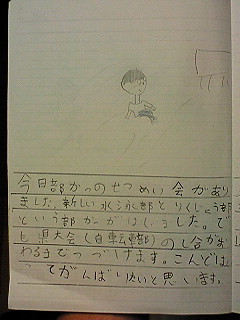 今日部かつのせつめい会があり
ました。新しい水泳部とりくじょう部
という部かつがはいしました。で
も県大会(自転車部)のし合がお
わるまでつづけます。こんどは
ってがんばりたいと思います。